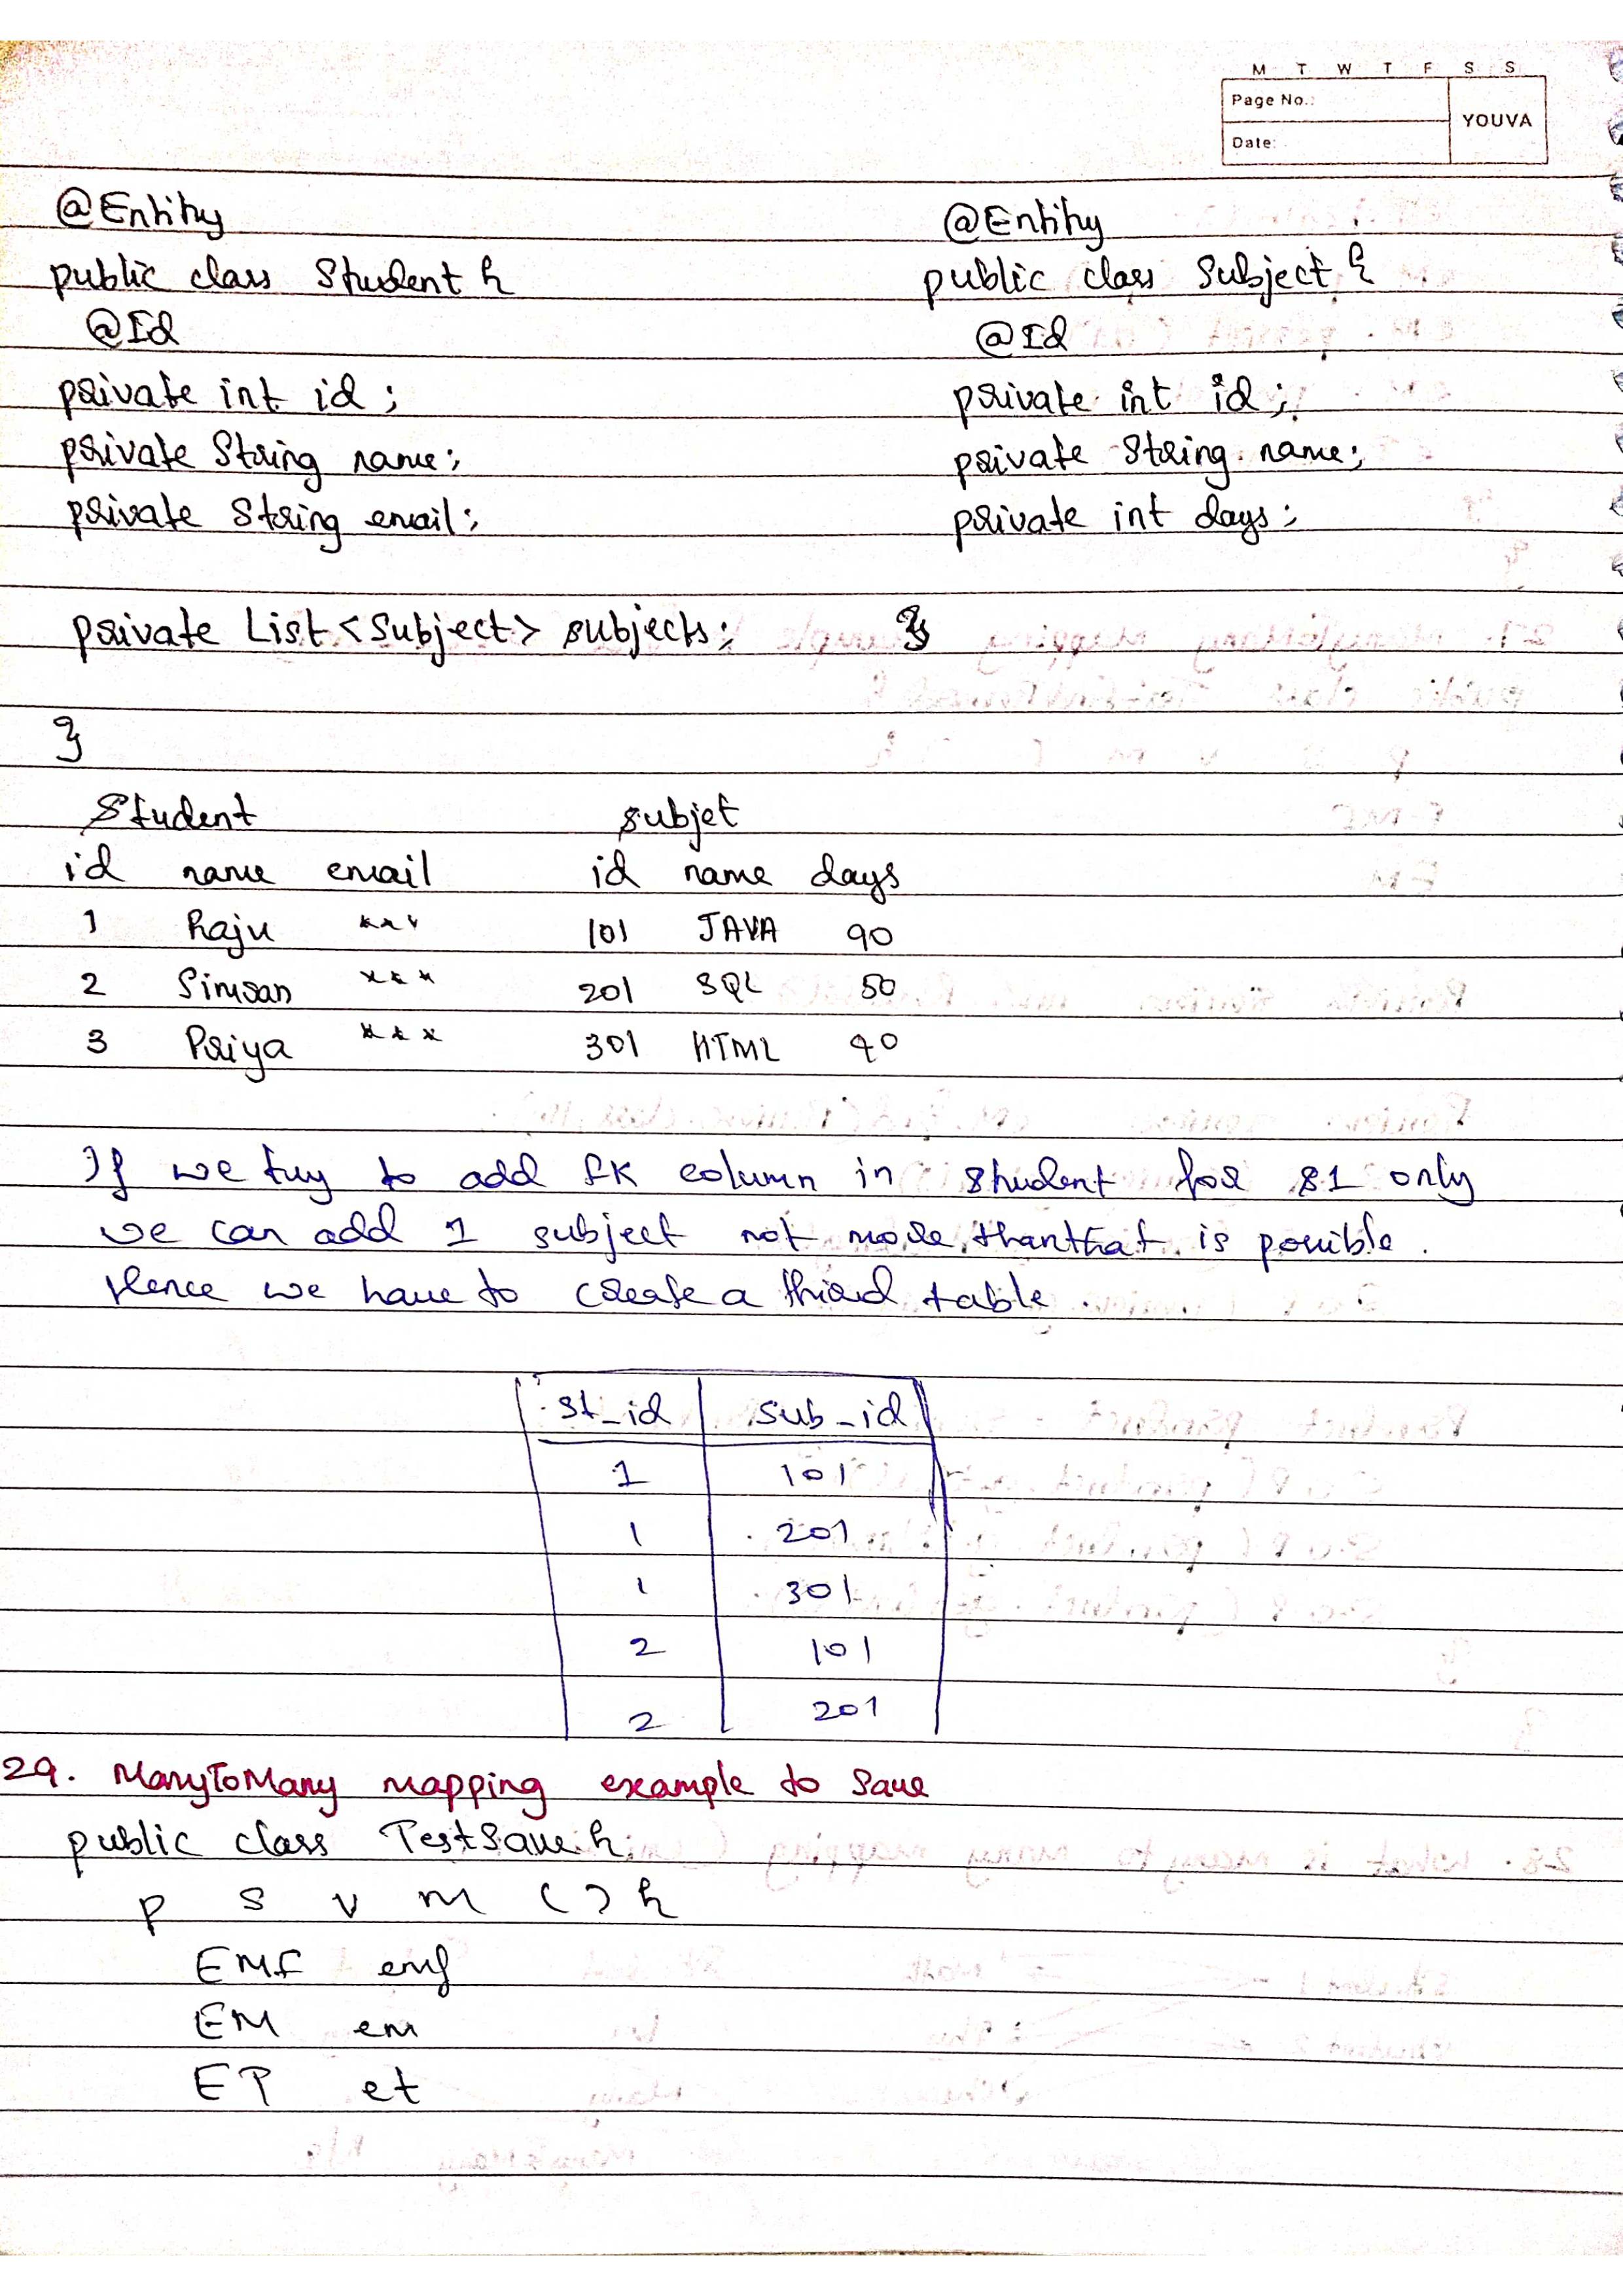 M T W T F S S
Page No.:
YOUVA
Date:
@Entity
public class Student {
@Id
private int id ;
private String name ;
private String email ;
private List <Subject> subjects ;
}
@Entity
public class Subject {
@Id
private int id ;
private String name ;
private int days ;
}
Student subjet
id name email id name days
1 Raju *** 101 JAVA 90
2 Simran *** 201 SQL 50
3 Priya *** 301 HTML 40
If we try to add fK column in student for s1 only
we can add 1 subject not more than that is possible.
Hence we have to create a third table.
st_id sub_id
1 101
1 201
1 301
2 101
2 201
29. ManyToMany mapping example to Save
public class TestSave {
p s v m ( ) {
EMF emf
EM em
ET et